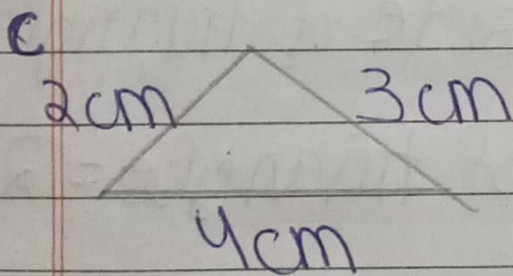 c
2cm 3cm
4cm